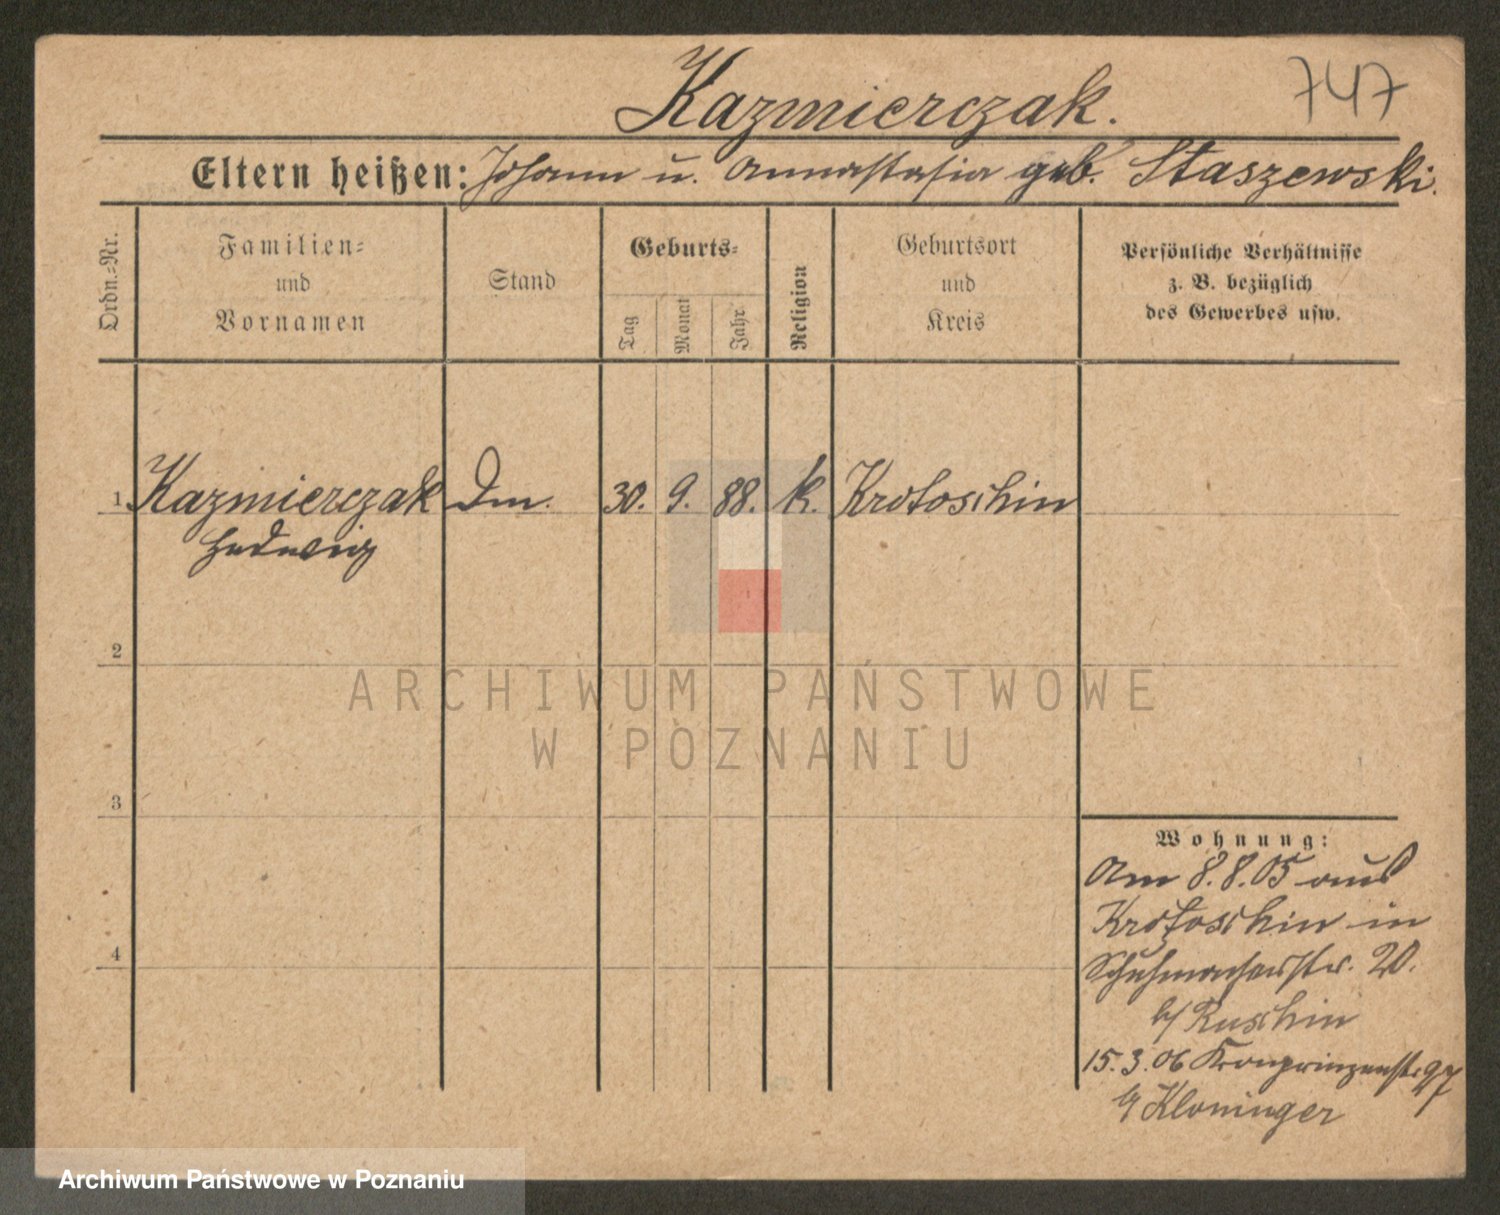 Kazmierczak.
747
Eltern heißen: Johann u. Annastasia geb. Staszewski.
Ordn.-Nr.
Familien-
und
Vornamen
Stand
Geburts-
Tag
Monat
Jahr
Religion
Geburtsort
und
Kreis
Persönliche Verhältnisse
z. B. bezüglich
des Gewerbes usw.
1 Kazmierczak Dm. 30. 9. 88. k. Krotoschin
Hedwig
2
3
4
ARCHIWUM PAŃSTWOWE
W POZNANIU
Wohnung:
Am 8.8.05 aus
Krotoschin in
Schuhmacherstr. 20.
b/ Ruschin
15.3.06 Kronprinzenstr. 97
b/ Kloninger
Archiwum Państwowe w Poznaniu